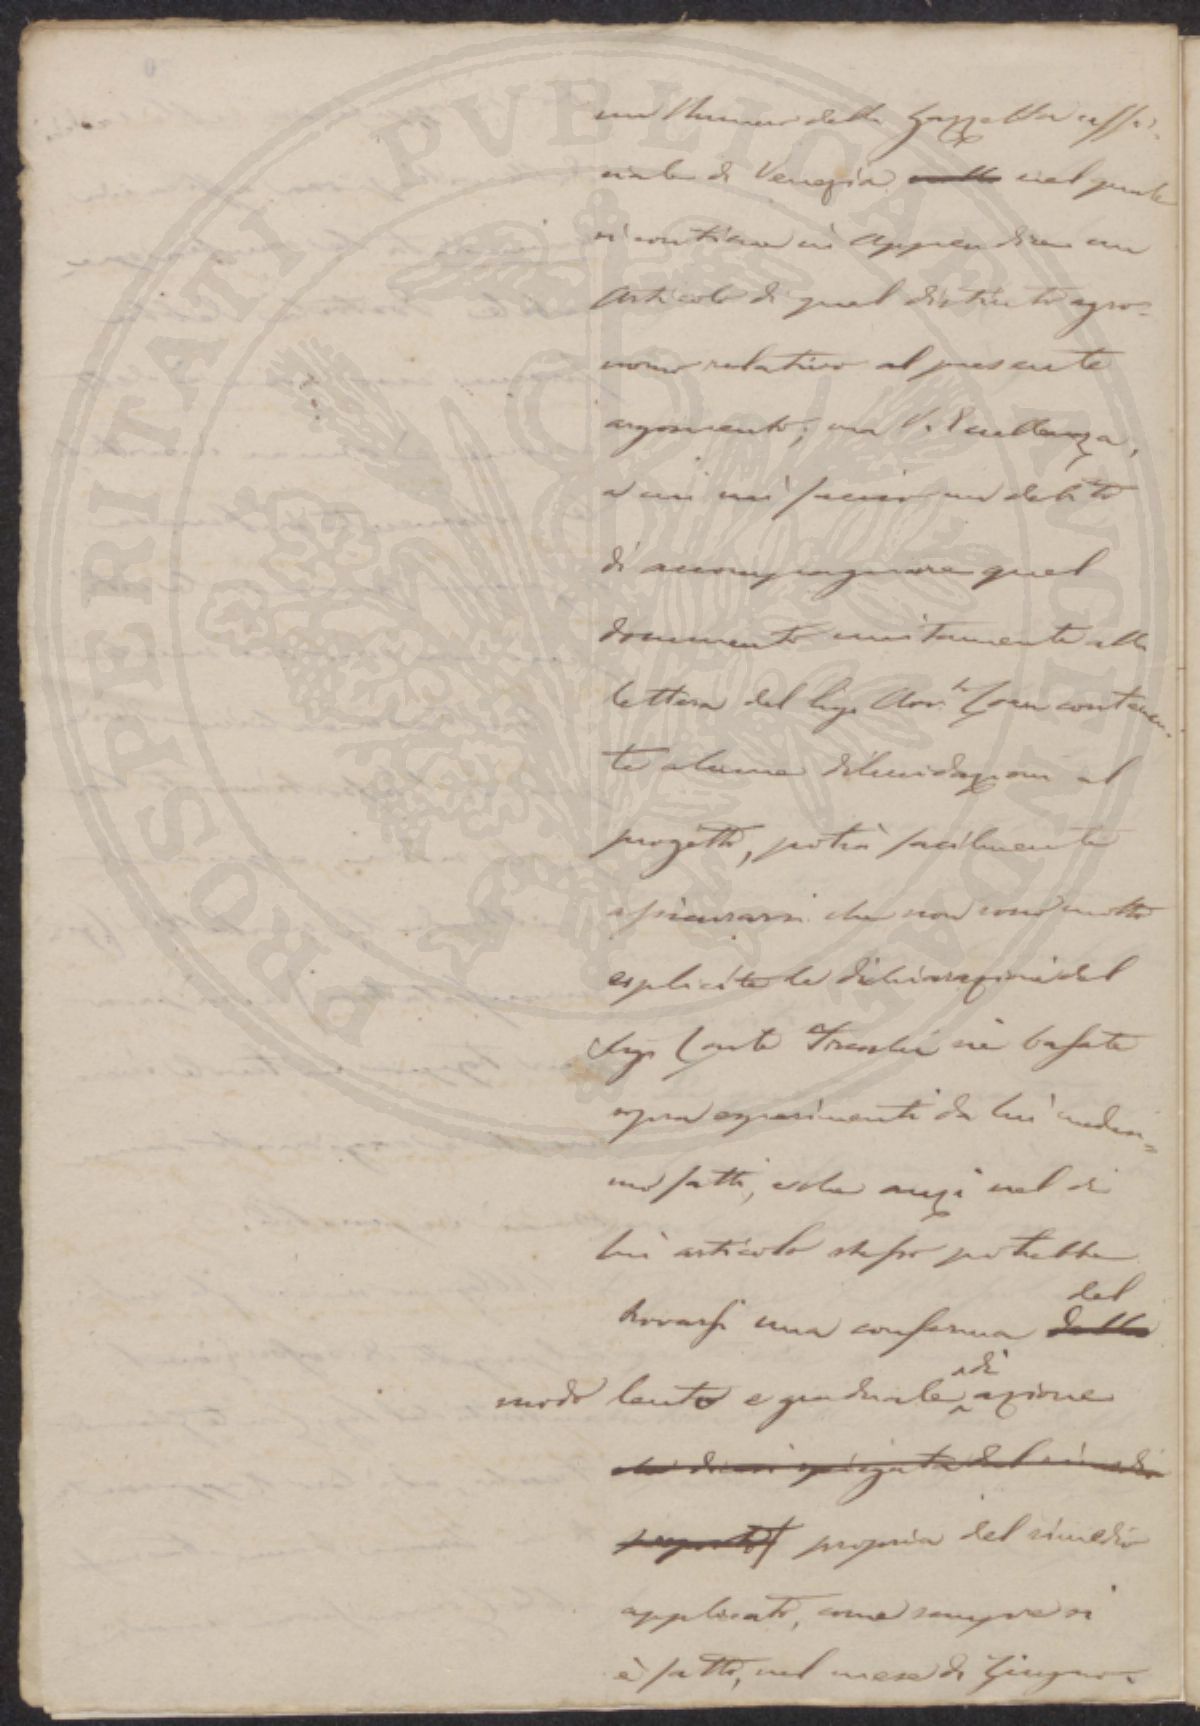 un Numero della Gazzetta uffi-
ciale di Venezia nella nel quale
si contiene in Appendice un
Articolo di quel distinto agro-
nomo relativo al presente
argomento; ma V. Eccellenza,
a cui mi faccio un debito
di accompagnare quel
documento unitamente alla
lettera del Sig. Avv.to contenen-
te alcune dilucidazioni al
progetto, potrà facilmente
assicurarsi che non sono molto
esplicite le dichiarazioni del
Sig. Conte nè basate
sopra esperimenti da lui mede-
mo fatti, e che anzi nel di
lui articolo stesso potrebbe
trovarsi una conferma della del
modo lento e graduale di azione
che dicesi spiegata dal rimedio
proposto propria del rimedio
applicato, come sempre si
è fatto, nel mese di Giugno.
PROSPERITATI PVBLICAE AVGENDAE